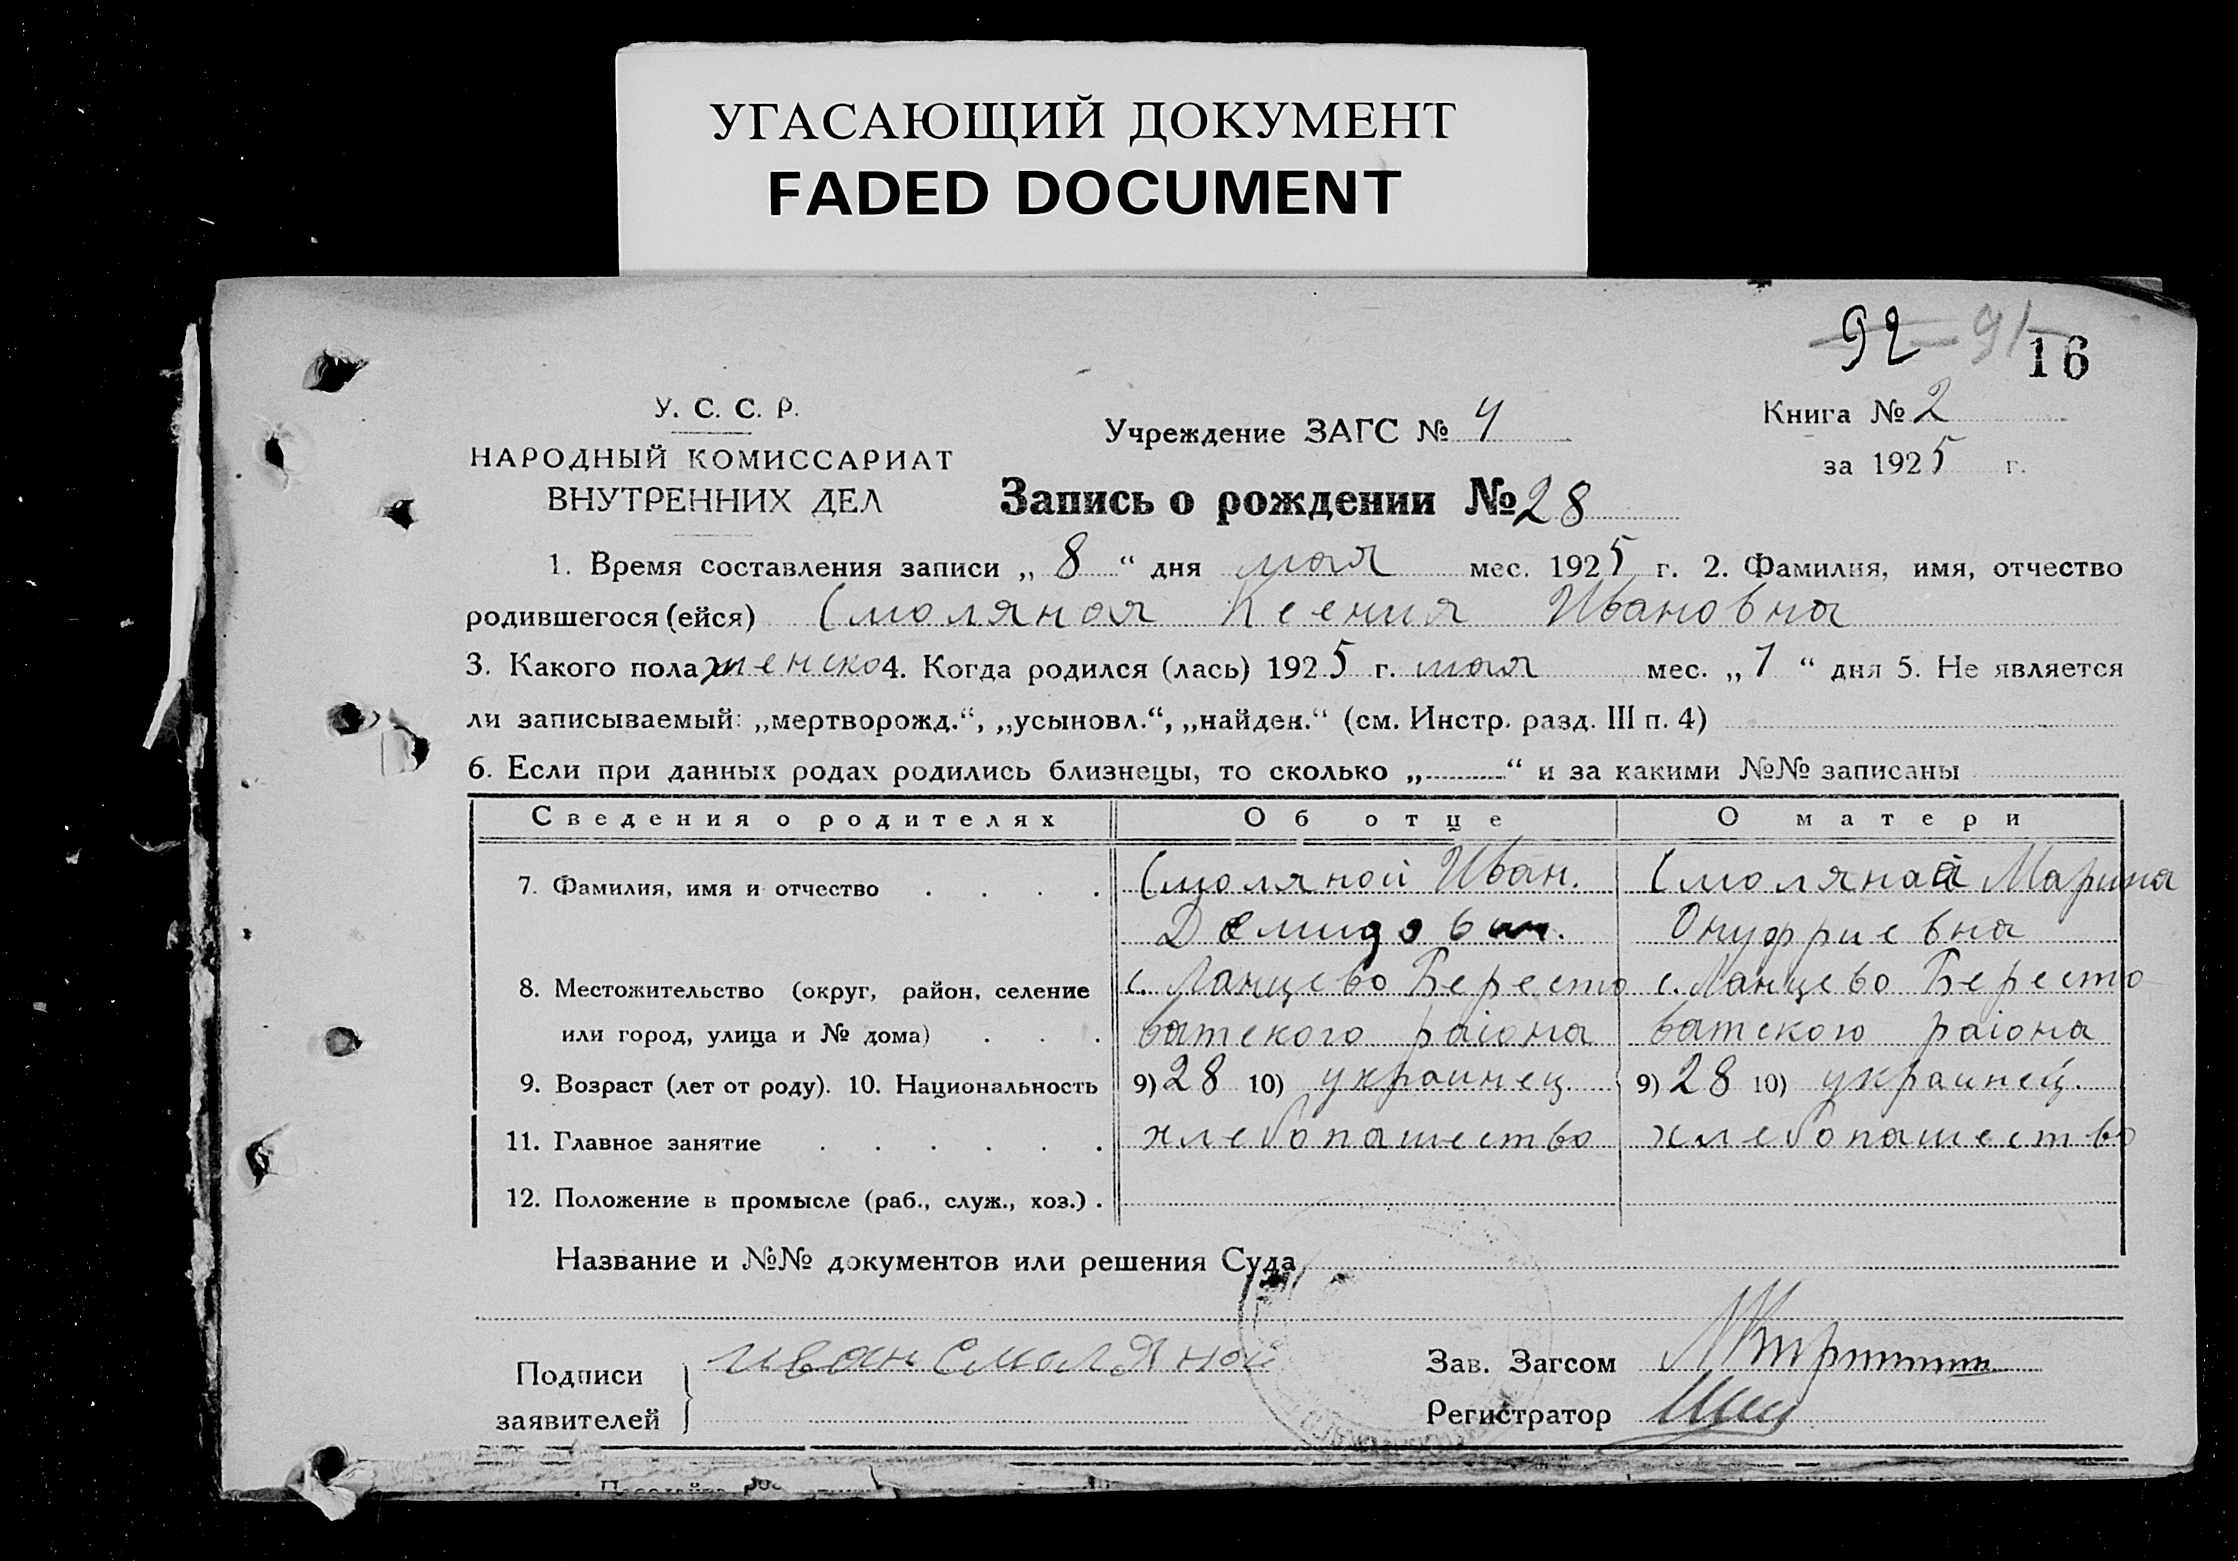 УГАСАЮЩИЙ ДОКУМЕНТ
FADED DOCUMENT
92 91 16
У. С. С. Р.
НАРОДНЫЙ КОМИССАРИАТ
ВНУТРЕННИХ ДЕЛ
Учреждение ЗАГС № 4
Книга № 2
за 1925 г.
Запись о рождении № 28
1. Время составления записи „ 8 “ дня мая мес. 1925 г. 2. Фамилия, имя, отчество
родившегося (ейся) Смоляная Ксения Ивановна
3. Какого пола женско 4. Когда родился (лась) 1925 г. мая мес. „ 7 “ дня 5. Не является
ли записываемый: „мертворожд.“, „усыновл.“, „найден.“ (см. Инстр. разд. III п. 4)
6. Если при данных родах родились близнецы, то сколько „..........“ и за какими №№ записаны
Сведения о родителях Об отце О матери
7. Фамилия, имя и отчество . . . . Смоляной Иван. Смоляная Марина
Демидович. Онуфриевна
8. Местожительство (округ, район, селение с. Ланцево Бересто с. Ланцево Бересто
или город, улица и № дома) . . . ватского раіона ватского раіона
9. Возраст (лет от роду). 10. Национальность 9) 28 10) украинец. 9) 28 10) украинец.
11. Главное занятие . . . . . . хлебопашество хлебопашество
12. Положение в промысле (раб., служ., хоз.) .
Название и №№ документов или решения Суда
Подписи
заявителей
иван Смоляной
Зав. Загсом
Регистратор